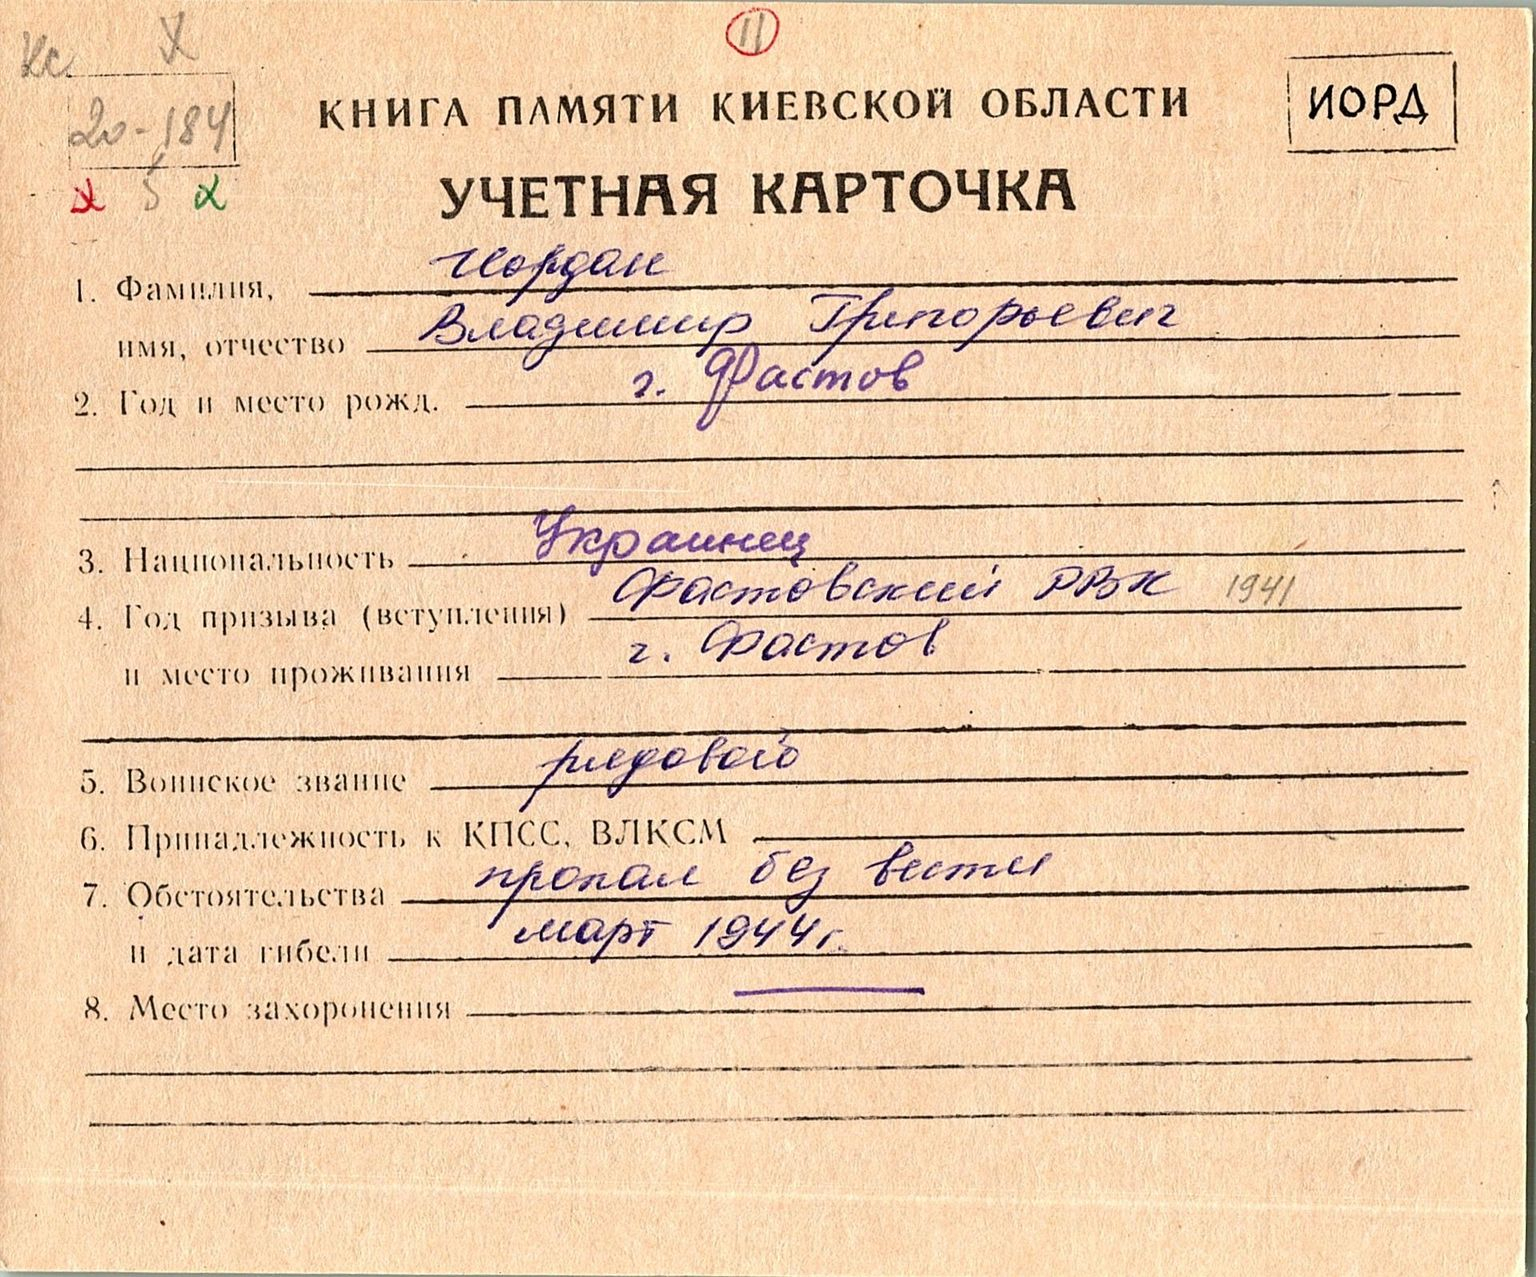 Кс. X
11
20-184
КНИГА ПАМЯТИ КИЕВСКОЙ ОБЛАСТИ
ИОРД
5
УЧЕТНАЯ КАРТОЧКА
1. Фамилия, Иордан
имя, отчество Владимир Григорьевич
2. Год и место рожд. г. Фастов
3. Национальность Украинец
4. Год призыва (вступления) Фастовский РВК 1941
и место проживания г. Фастов
5. Воинское звание рядовой
6. Принадлежность к КПСС, ВЛКСМ
7. Обстоятельства пропал без вести
и дата гибели март 1944г.
8. Место захоронения —